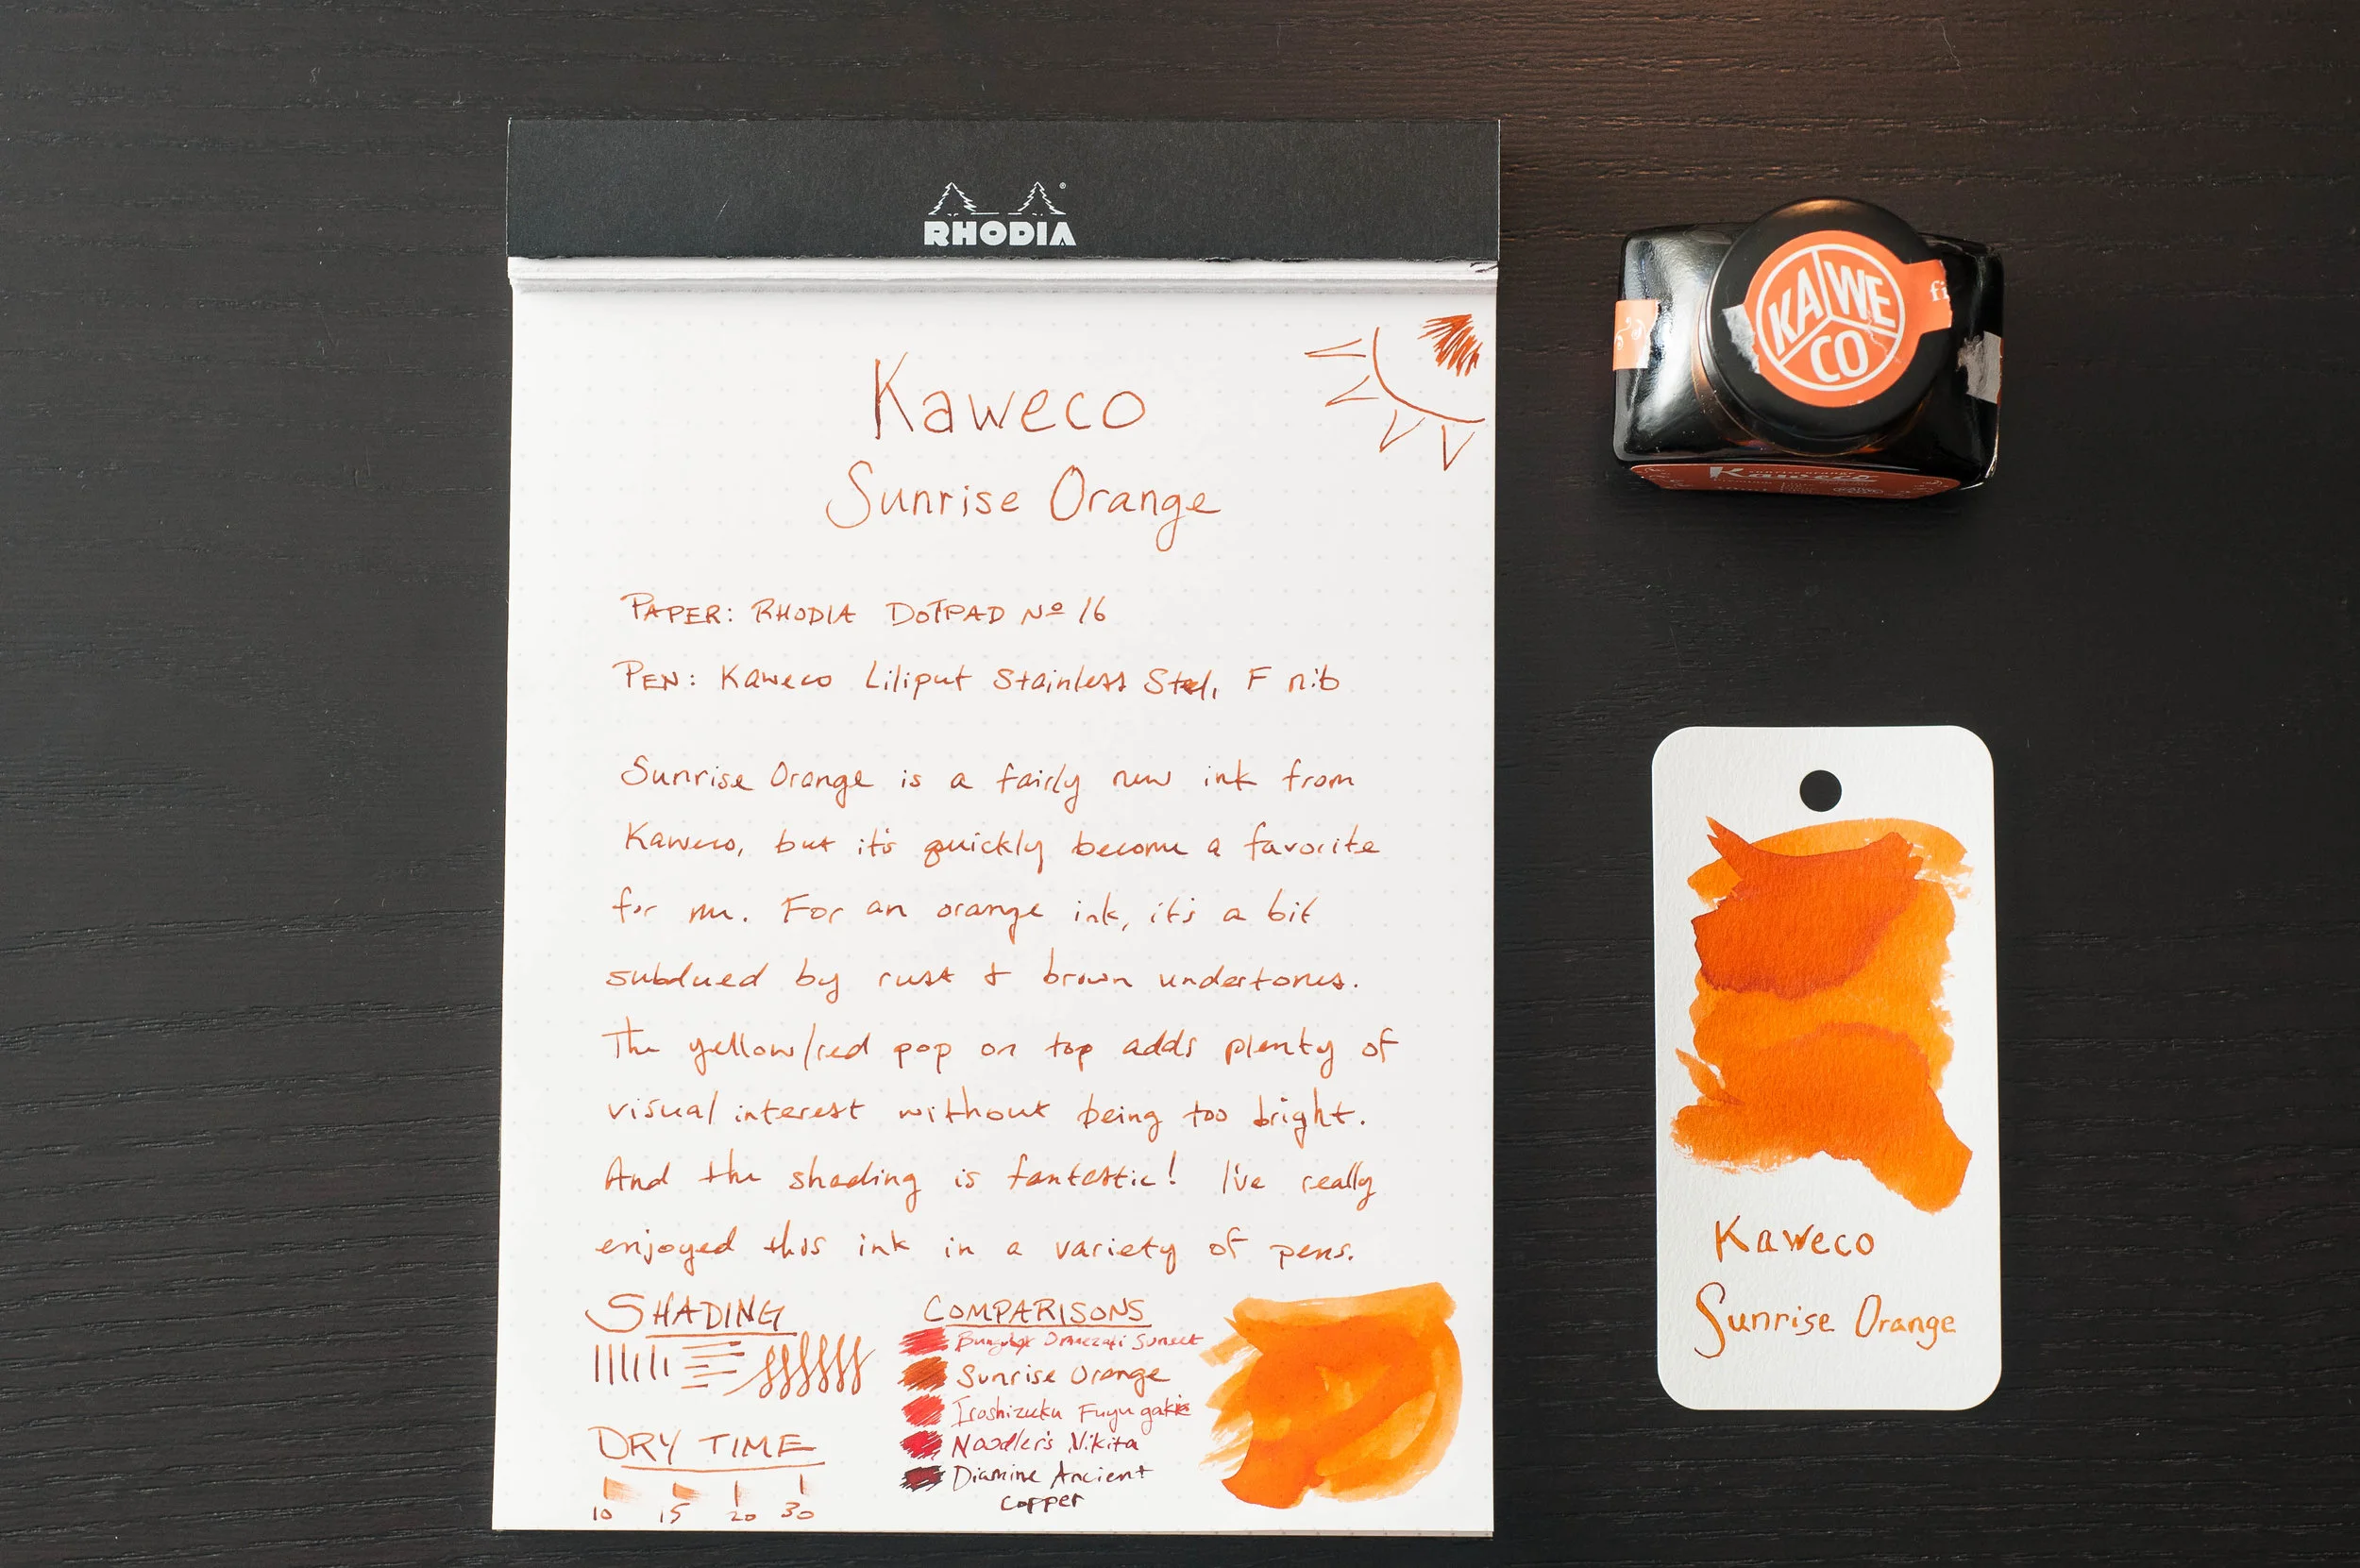 RHODIA
Kaweco
Sunrise Orange
PAPER: RHODIA DOTPAD Nº 16
PEN: Kaweco Liliput Stainless Steel, F nib
Sunrise Orange is a fairly new ink from
Kaweco, but it's quickly become a favorite
for me. For an orange ink, it's a bit
subdued by rust & brown undertones.
The yellow/red pop on top adds plenty of
visual interest without being too bright.
And the shading is fantastic! I've really
enjoyed this ink in a variety of pens.
SHADING
DRY TIME
10 15 20 30
COMPARISONS
Sunset
Sunrise Orange
Iroshizuku Fuyu gaki
Noodler's Nikita
Diamine Ancient
Copper
KAWECO
fi
Kaweco
Kaweco
Sunrise Orange